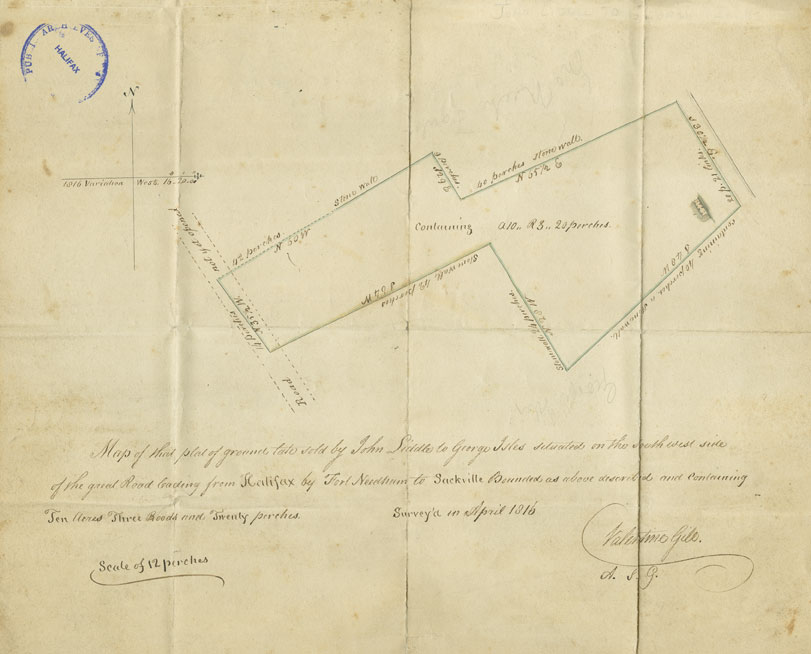 PUB ARCHIVES
HALIFAX
N
1816 Variation West
not yet opened
Road
42 perches
Stone wall
40 perches Stone wall
N 55 1/2 E
Containing A10,, R3,, 20 perches.
S 40 W
containing 40 perches Stone wall.
Stone wall 24 perches
Stone wall, perches
Map of that plot of ground late sold by John Liddle to George Isles situated on the South west side
of the great Road leading from Halifax by Fort Needham to Sackville Bounded as above described and Containing
Ten Acres Three Roods and Twenty perches. Survey'd in April 1816
Valentine Gill.
A. S. G.
Scale of 12 perches